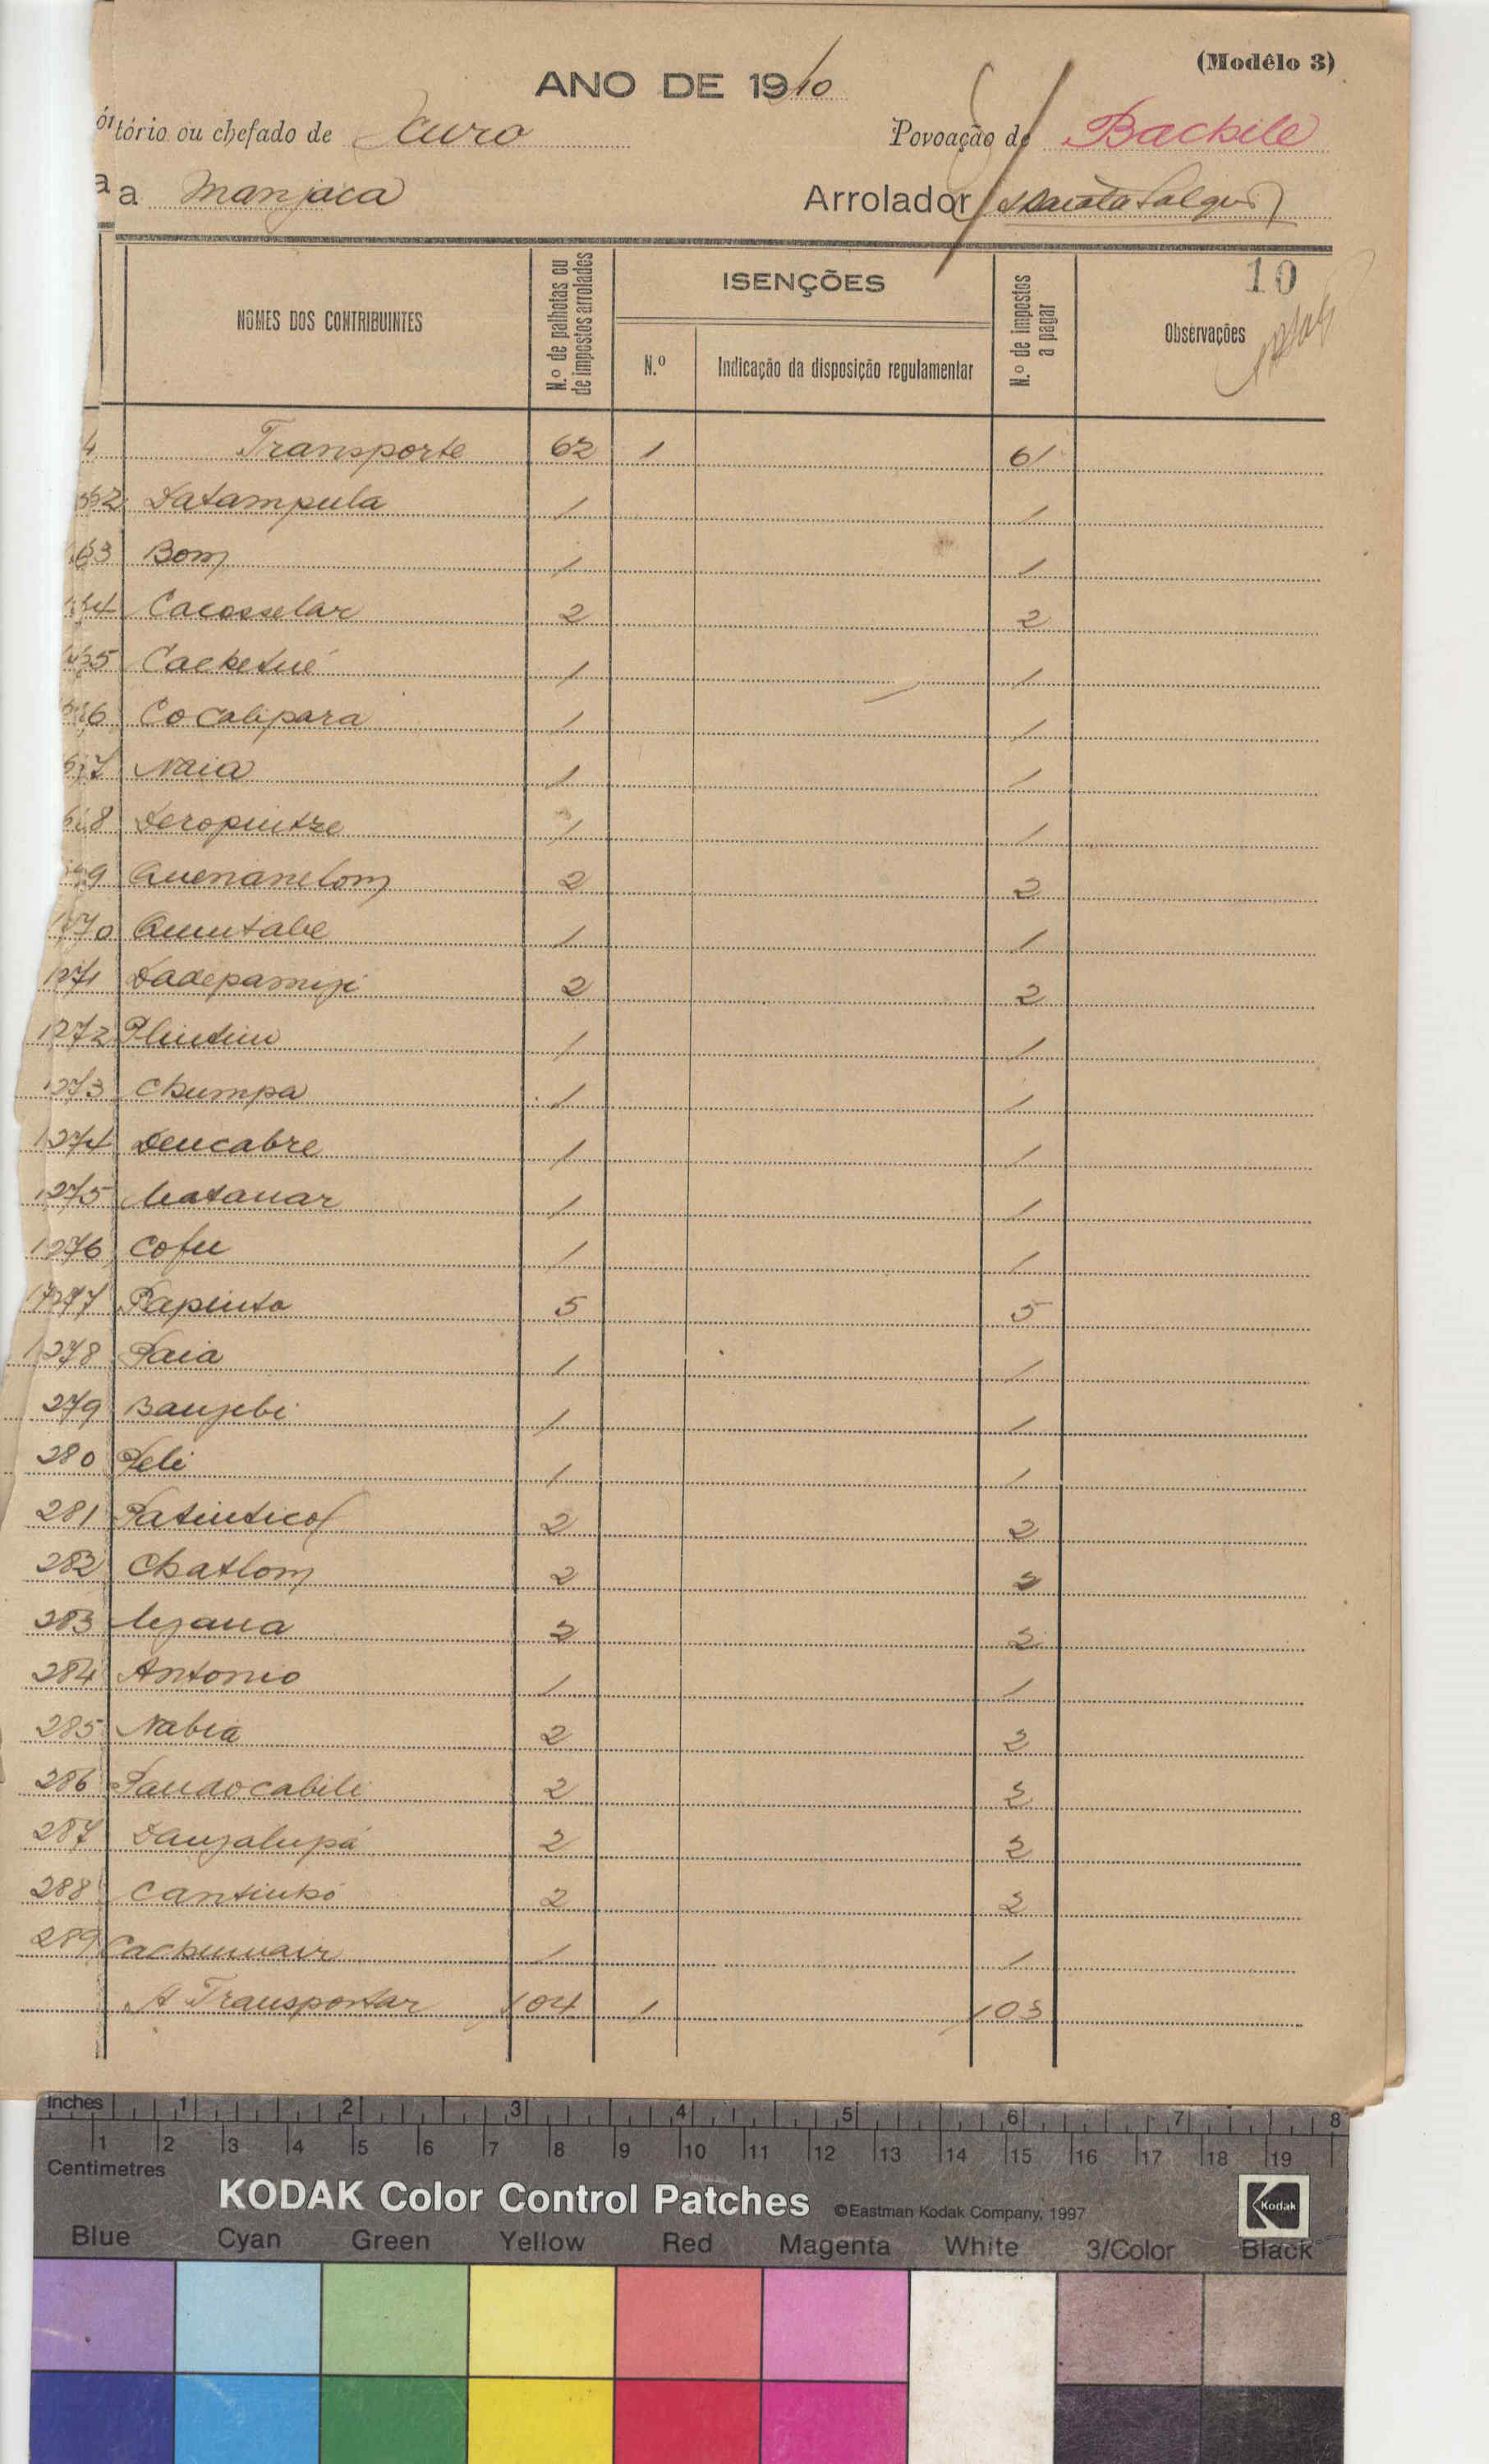 (Modêlo 3)
ANO DE 1910
tório ou chefado de Curo Povoação de Bachile
a Manjaca Arrolador
10
NOMES DOS CONTRIBUINTES N.º de palhotas ou de impostos arrolados ISENÇÕES N.º Indicação da disposição regulamentar N.º de impostos a pagar Observações
Transporte 62 1 61
62 Datampula 1 1
63 Bom 1 1
64 Cacosselar 2 2
65 Cachetué 1 1
66 Cocalipara 1 1
67 Naia 1 1
68 Deropintze 1 1
69 Quenanelom 2 2
1270 Quintabe 1 1
1271 Dadepamiji 2 2
1272 Plintim 1 1
1273 Chumpa 1 1
1274 Deucabre 1 1
1275 Matauar 1 1
1276 Cofu 1 1
1277 Papinto 5 5
1278 Paia 1 1
279 Banjebi 1 1
280 Peli 1 1
281 Patintica 2 2
282 Chatlom 2 2
283 2 2
284 Antonio 1 1
285 Nabia 2 2
286 Paudocabili 2 2
287 Danjalupá 2 2
288 Cantinkó 2 2
289 1 1
A Transportar 104 1 103
Inches 1 2 3 4 5 6 7 8
1 2 3 4 5 6 7 8 9 10 11 12 13 14 15 16 17 18 19
Centimetres
KODAK Color Control Patches ©Eastman Kodak Company, 1997 Kodak
Blue Cyan Green Yellow Red Magenta White 3/Color Black